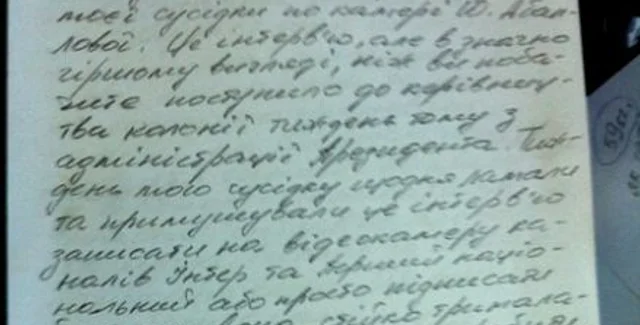 моєї сусідки по камері Ю. Абап-
лової. Це інтерв'ю, але в значно
гіршому вигляді, ніж ви поба-
чите поступило до керівниц-
тва колонії тиждень тому з
адміністрації Президента. Тиж-
день мою сусідку щодня ламали
та примушували це інтерв'ю
записати на відеокамеру ка-
налів Інтер та Перший націо-
нальний або просто підписати
стійко трималa-
59